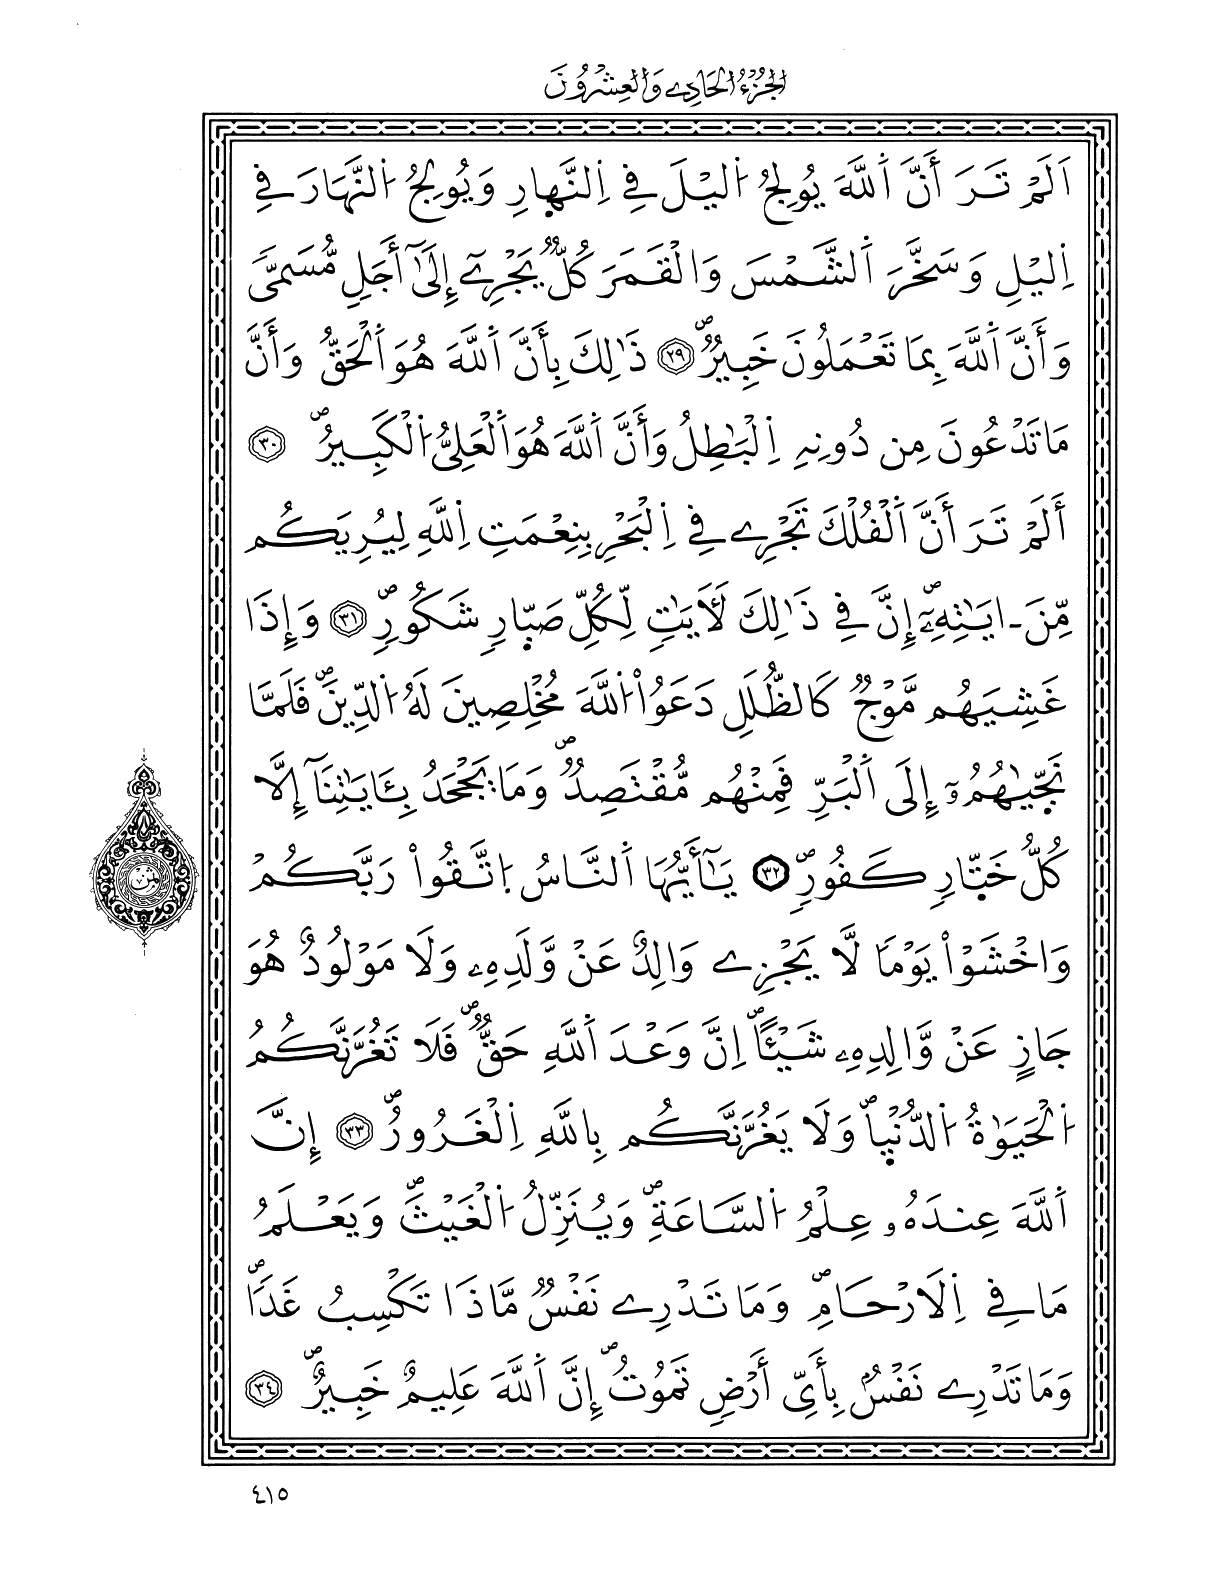 الجُزْءُ الحَادِے وَالعِشْرُونَ
اَلَمْ تَرَ أَنَّ اَ۬للَّهَ يُولِجُ اُ۬ليْلَ فِے اِ۬لنَّه۪ارِ وَيُولِجُ اُ۬لنَّهَارَ فِے
اِ۬ليْلِ وَسَخَّرَ اَ۬لشَّمْسَ وَالْقَمَرَ كُلّٞ يَجْرِےٓ إِلَىٰٓ أَجَلٖ مُّسَمّىٗ
وَأَنَّ اَ۬للَّهَ بِمَا تَعْمَلُونَ خَبِيرٞۖ ٢٩ ذَٰلِكَ بِأَنَّ اَ۬للَّهَ هُوَ اَ۬لْحَقُّ وَأَنَّ
مَا تَدْعُونَ مِن دُونِهِ اِ۬لْبَٰطِلُ وَأَنَّ اَ۬للَّهَ هُوَ اَ۬لْعَلِيُّ اُ۬لْكَبِيرُۖ ٣٠
أَلَمْ تَرَ أَنَّ اَ۬لْفُلْكَ تَجْرِے فِے اِ۬لْبَحْرِ بِنِعْمَتِ اِ۬للَّهِ لِيُرِيَكُم
مِّنَ ـ ايَٰتِهِۦٓۖ إِنَّ فِے ذَٰلِكَ لَأٓيَٰتٖ لِّكُلِّ صَبّ۪ارٖ شَكُورٖۖ ٣١ وَإِذَا
غَشِيَهُم مَّوْجٞ كَالظُّلَلِ دَعَوُاْ اُ۬للَّهَ مُخْلِصِينَ لَهُ اُ۬لدِّينَۖ فَلَمَّا
نَجّ۪يٰهُمُۥٓ إِلَى اَ۬لْبَرِّ فَمِنْهُم مُّقْتَصِدٞۖ وَمَا يَجْحَدُ بِـَٔايَٰتِنَآ إِلَّا
كُلُّ خَبّ۪ارٖ كَفُورٖۖ ٣٢ يَٰٓأَيُّهَا اَ۬لنَّاسُ اُ۪تَّقُواْ رَبَّكُمْ
وَاخْشَوْاْ يَوْماٗ لَّا يَجْزِے وَالِدٌ عَنْ وَّلَدِهِۦ وَلَا مَوْلُودٌ هُوَ
جَازٍ عَنْ وَّالِدِهِۦ شَيْـٔاًۖ اِنَّ وَعْدَ اَ۬للَّهِ حَقّٞۖ فَلَا تَغُرَّنَّكُمُ
اُ۬لْحَيَوٰةُ اُ۬لدُّنْي۪اۖ وَلَا يَغُرَّنَّكُم بِاللَّهِ اِ۬لْغَرُورُۖ ٣٣ إِنَّ
اَ۬للَّهَ عِندَهُۥ عِلْمُ اُ۬لسَّاعَةِۖ وَيُنَزِّلُ اُ۬لْغَيْثَۖ وَيَعْلَمُ
مَا فِے اِ۬لَارْحَامِۖ وَمَا تَدْرِے نَفْسٞ مَّاذَا تَكْسِبُ غَداٗۖ
وَمَا تَدْرِے نَفْسُۢ بِأَيِّ أَرْضٖ تَمُوتُۖ إِنَّ اَ۬للَّهَ عَلِيمٌ خَبِيرٞۖ ٣٤
ثمن
٤١٥